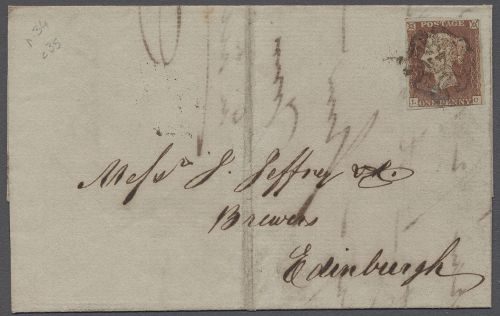 P. 34
c35
POSTAGE
ONE PENNY
Messrs J. Jeffrey & Co.
Brewers
Edinburgh